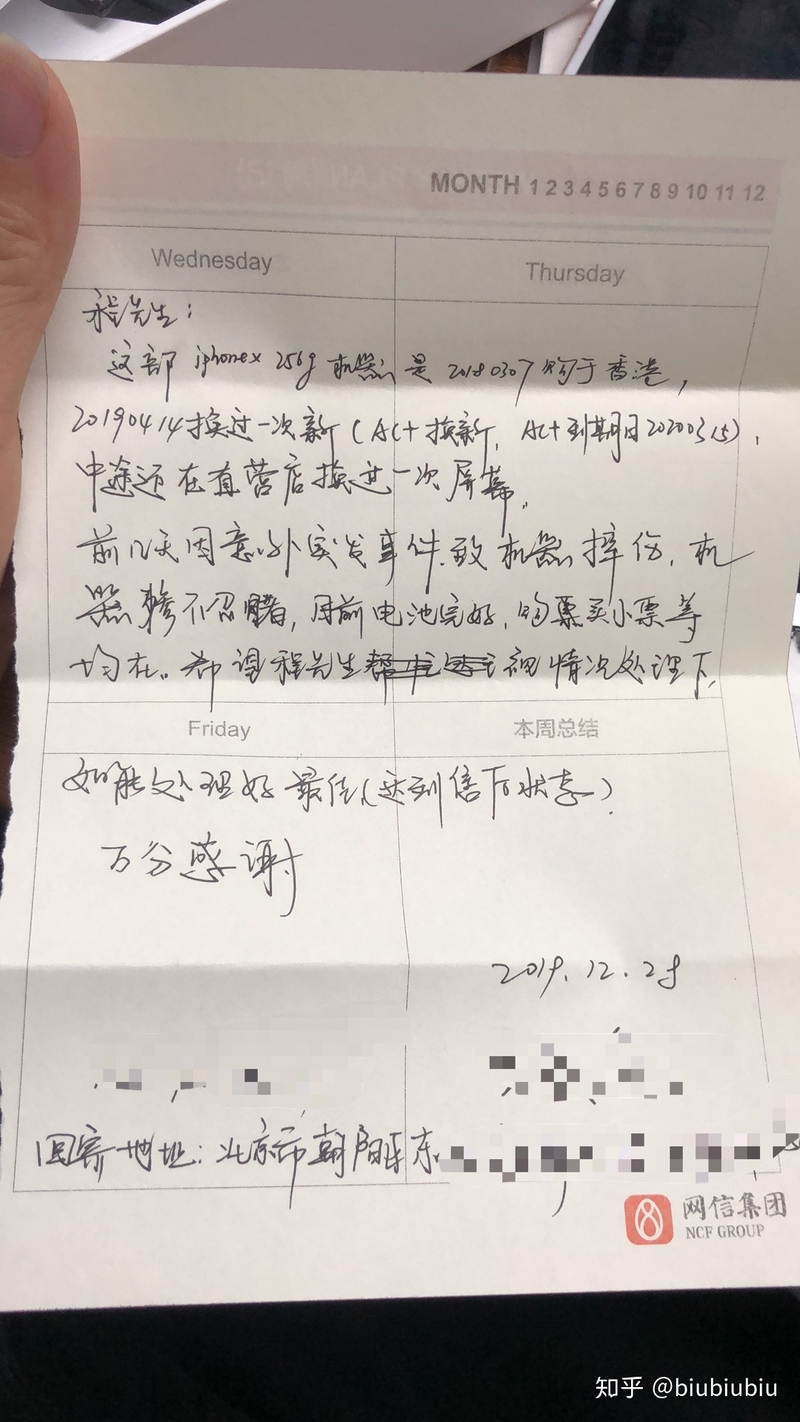 MONTH 1 2 3 4 5 6 7 8 9 10 11 12
Wednesday
Thursday
程先生：
这部 iphonex 256g 机器是 20180307 购于香港，
20190414换过一次新（AC+换新，AC+到期日20200315），
中途还在直营店换过一次屏幕。
前几天因意外突发事件致机器摔伤，机
器惨不忍睹，目前电池完好，购买小票等
均在。希望程先生视情况处理下，
Friday
本周总结
如能处理好最佳（达到信下状态）
万分感谢
2019.12.28
回寄地址：北京市朝阳区东
网信集团
NCF GROUP
知乎 @biubiubiu